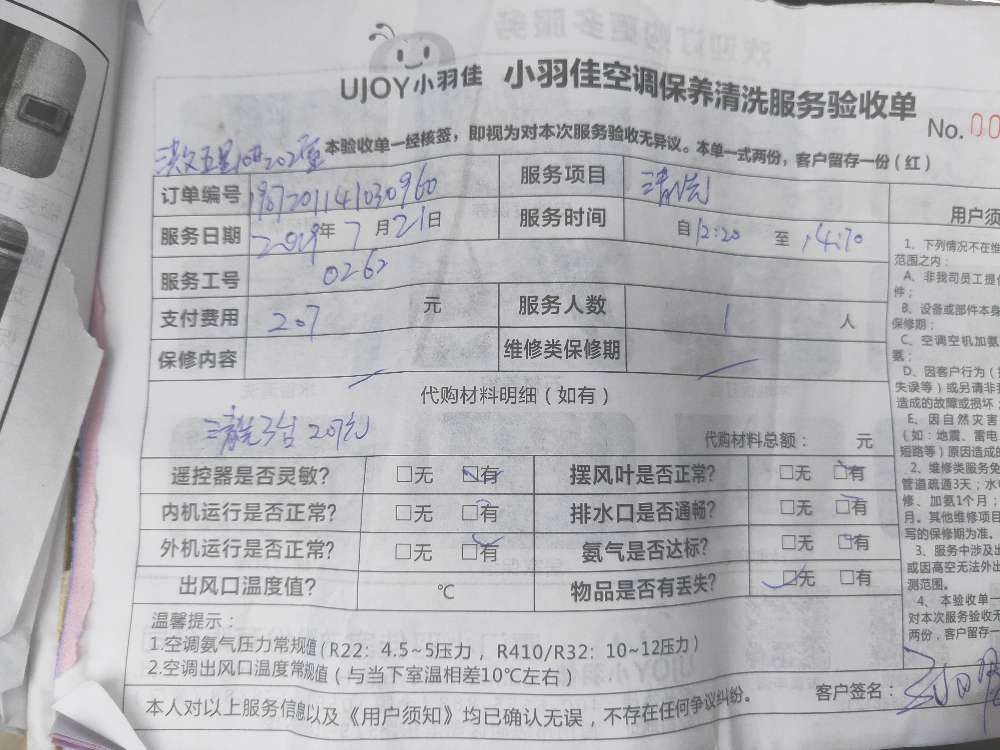 UJOY小羽佳 小羽佳空调保养清洗服务验收单
No. 00
本验收单一经核签，即视为对本次服务验收无异议。本单一式两份，客户留存一份(红)
订单编号 服务项目 清洗
服务日期 2019年7月21日 服务时间 自12:20 至
服务工号 0262
支付费用 207 元 服务人数 1 人
保修内容 维修类保修期
代购材料明细（如有）
清洗3台207元
代购材料总额： 元
遥控器是否灵敏？ □无 □有 摆风叶是否正常？ □无 □有
内机运行是否正常？ □无 □有 排水口是否通畅？ □无 □有
外机运行是否正常？ □无 □有 氨气是否达标？ □无 □有
出风口温度值？ ℃ 物品是否有丢失？ □无 □有
温馨提示：
1.空调氨气压力常规值（R22：4.5~5压力，R410/R32：10~12压力）
2.空调出风口温度常规值（与当下室温相差10℃左右）
客户签名：
本人对以上服务信息以及《用户须知》均已确认无误，不存在任何争议纠纷。
用户须
1、下列情况不在维
范围之内：
A、非我司员工提供
件；
B、设备或部件本身
保修期；
C、空调空机加氨
氨；
D、因客户行为（
失误等）或另请非
造成的故障或损坏；
E、因自然灾害
（如：地震、雷电
短路等）原因造成的
2、维修类服务免
管道疏通3天；水
修、加氨1个月；
月。其他维修项目
写的保修期为准。
3、服务中涉及出
或因高空无法外出
测范围。
4、本验收单一
对本次服务验收无
两份，客户留存一